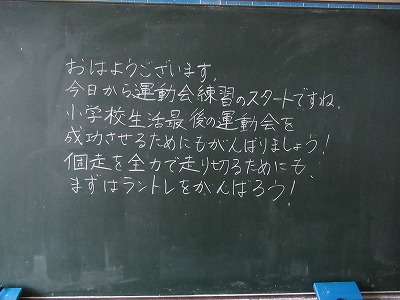 おはようございます。
今日から運動会練習のスタートですね。
小学校生活最後の運動会を
成功させるためにもがんばりましょう!
個走を全力で走り切るためにも、
まずはラントレをがんばろう!